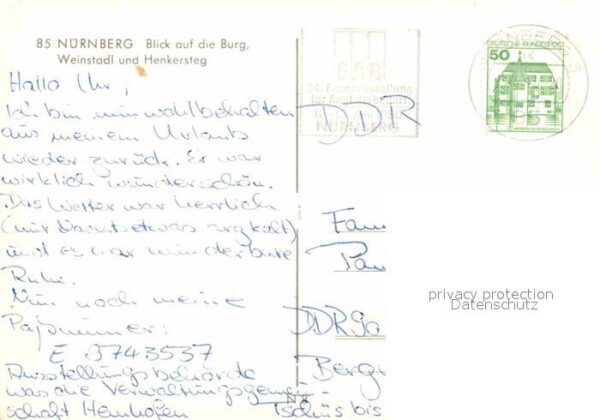 85 NÜRNBERG Blick auf die Burg,
Weinstadl und Henkersteg
Hallo Ihr,
Ich bin nun wohlbehalten
aus meinem Urlaub
wieder zurück. Es war
wirklich wunderschön.
Das Wetter war herrlich
(nur Nachts etwas arg kalt)
und es war wunderbare
Ruhe.
Nun noch meine
Paßnummer:
E 9743537
Ausstellungsbehörde
was die Verwaltungsgemein-
schaft Hemhofen Tschüs bis
DDR
NÜRNBERG
50
DEUTSCHE BUNDESPOST
Fam
DDR
Berg
privacy protection
Datenschutz